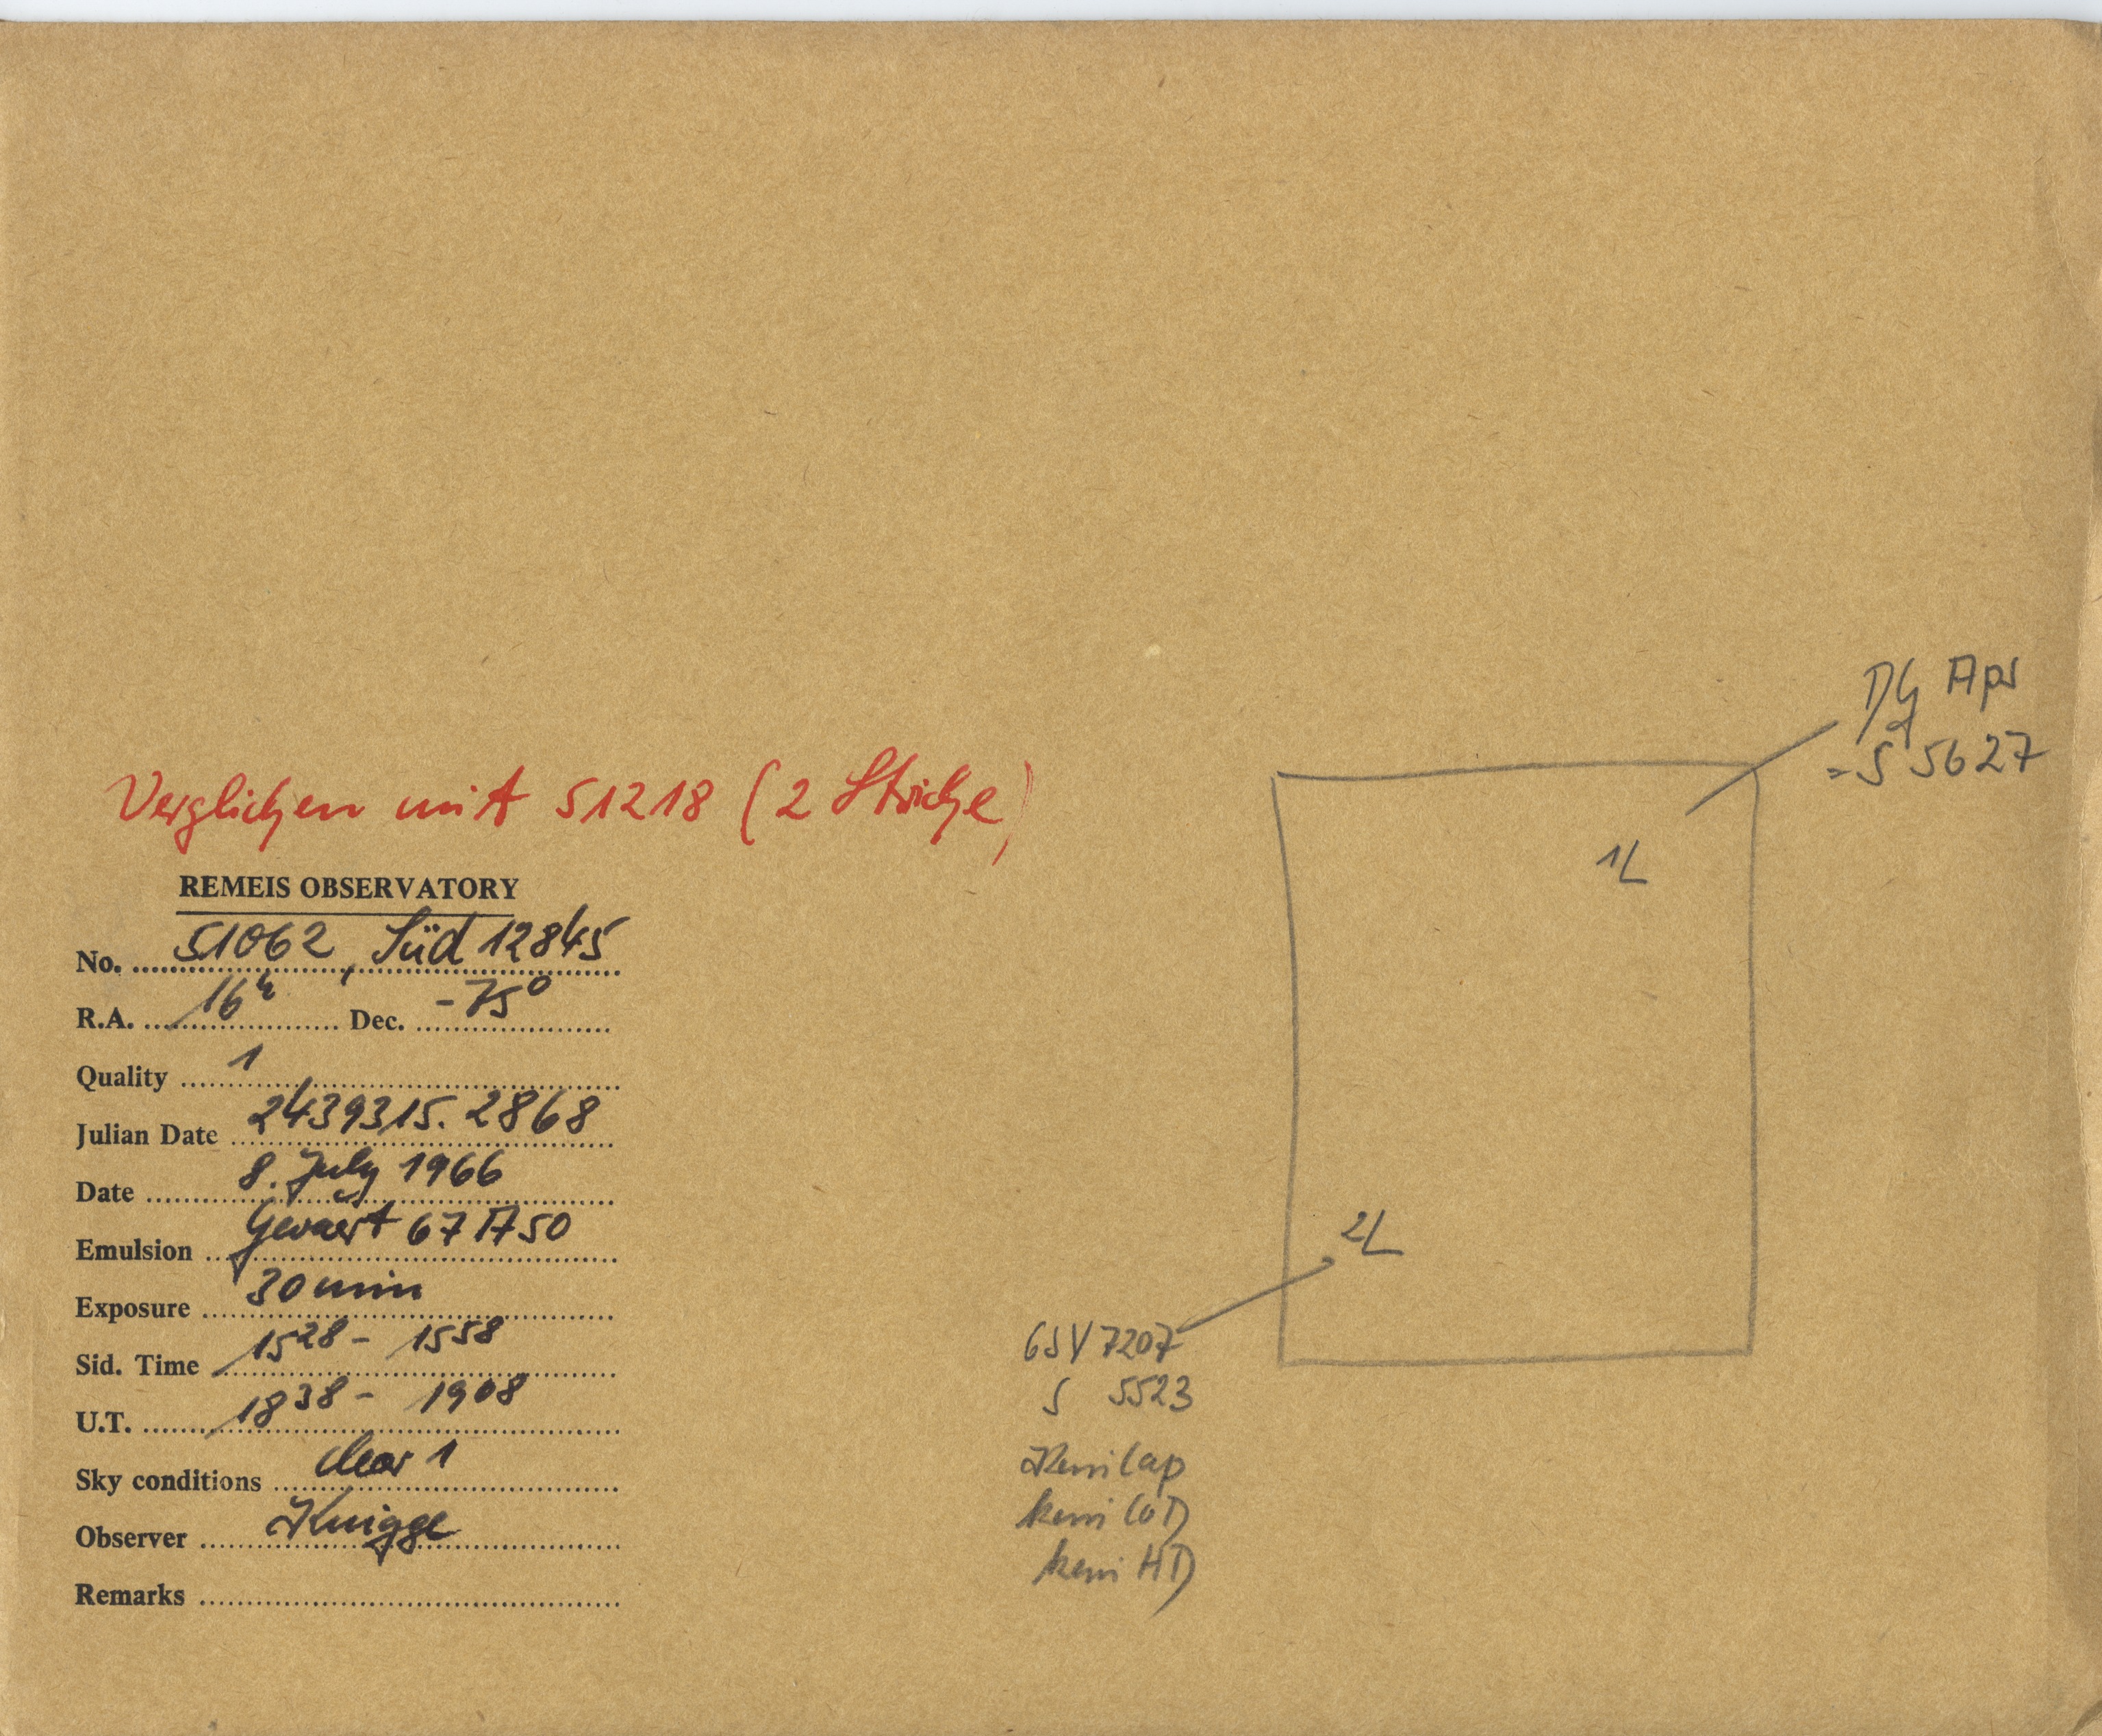 Verglichen mit 51218 (2 Striche)
REMEIS OBSERVATORY
No. 51062, Süd 12845
R.A. 16h Dec. -75°
Quality 1
Julian Date 2439315.2868
Date 8. July 1966
Emulsion Gevaert 67A50
Exposure 30 min
Sid. Time 15 28 - 15 58
U.T. 18 38 - 19 08
Sky conditions clear 1
Observer Knigge
Remarks
DG Aps
= S 5627
1L
2L
CSV 7207
S 5523
Kein Cap
kein CoD
kein HD